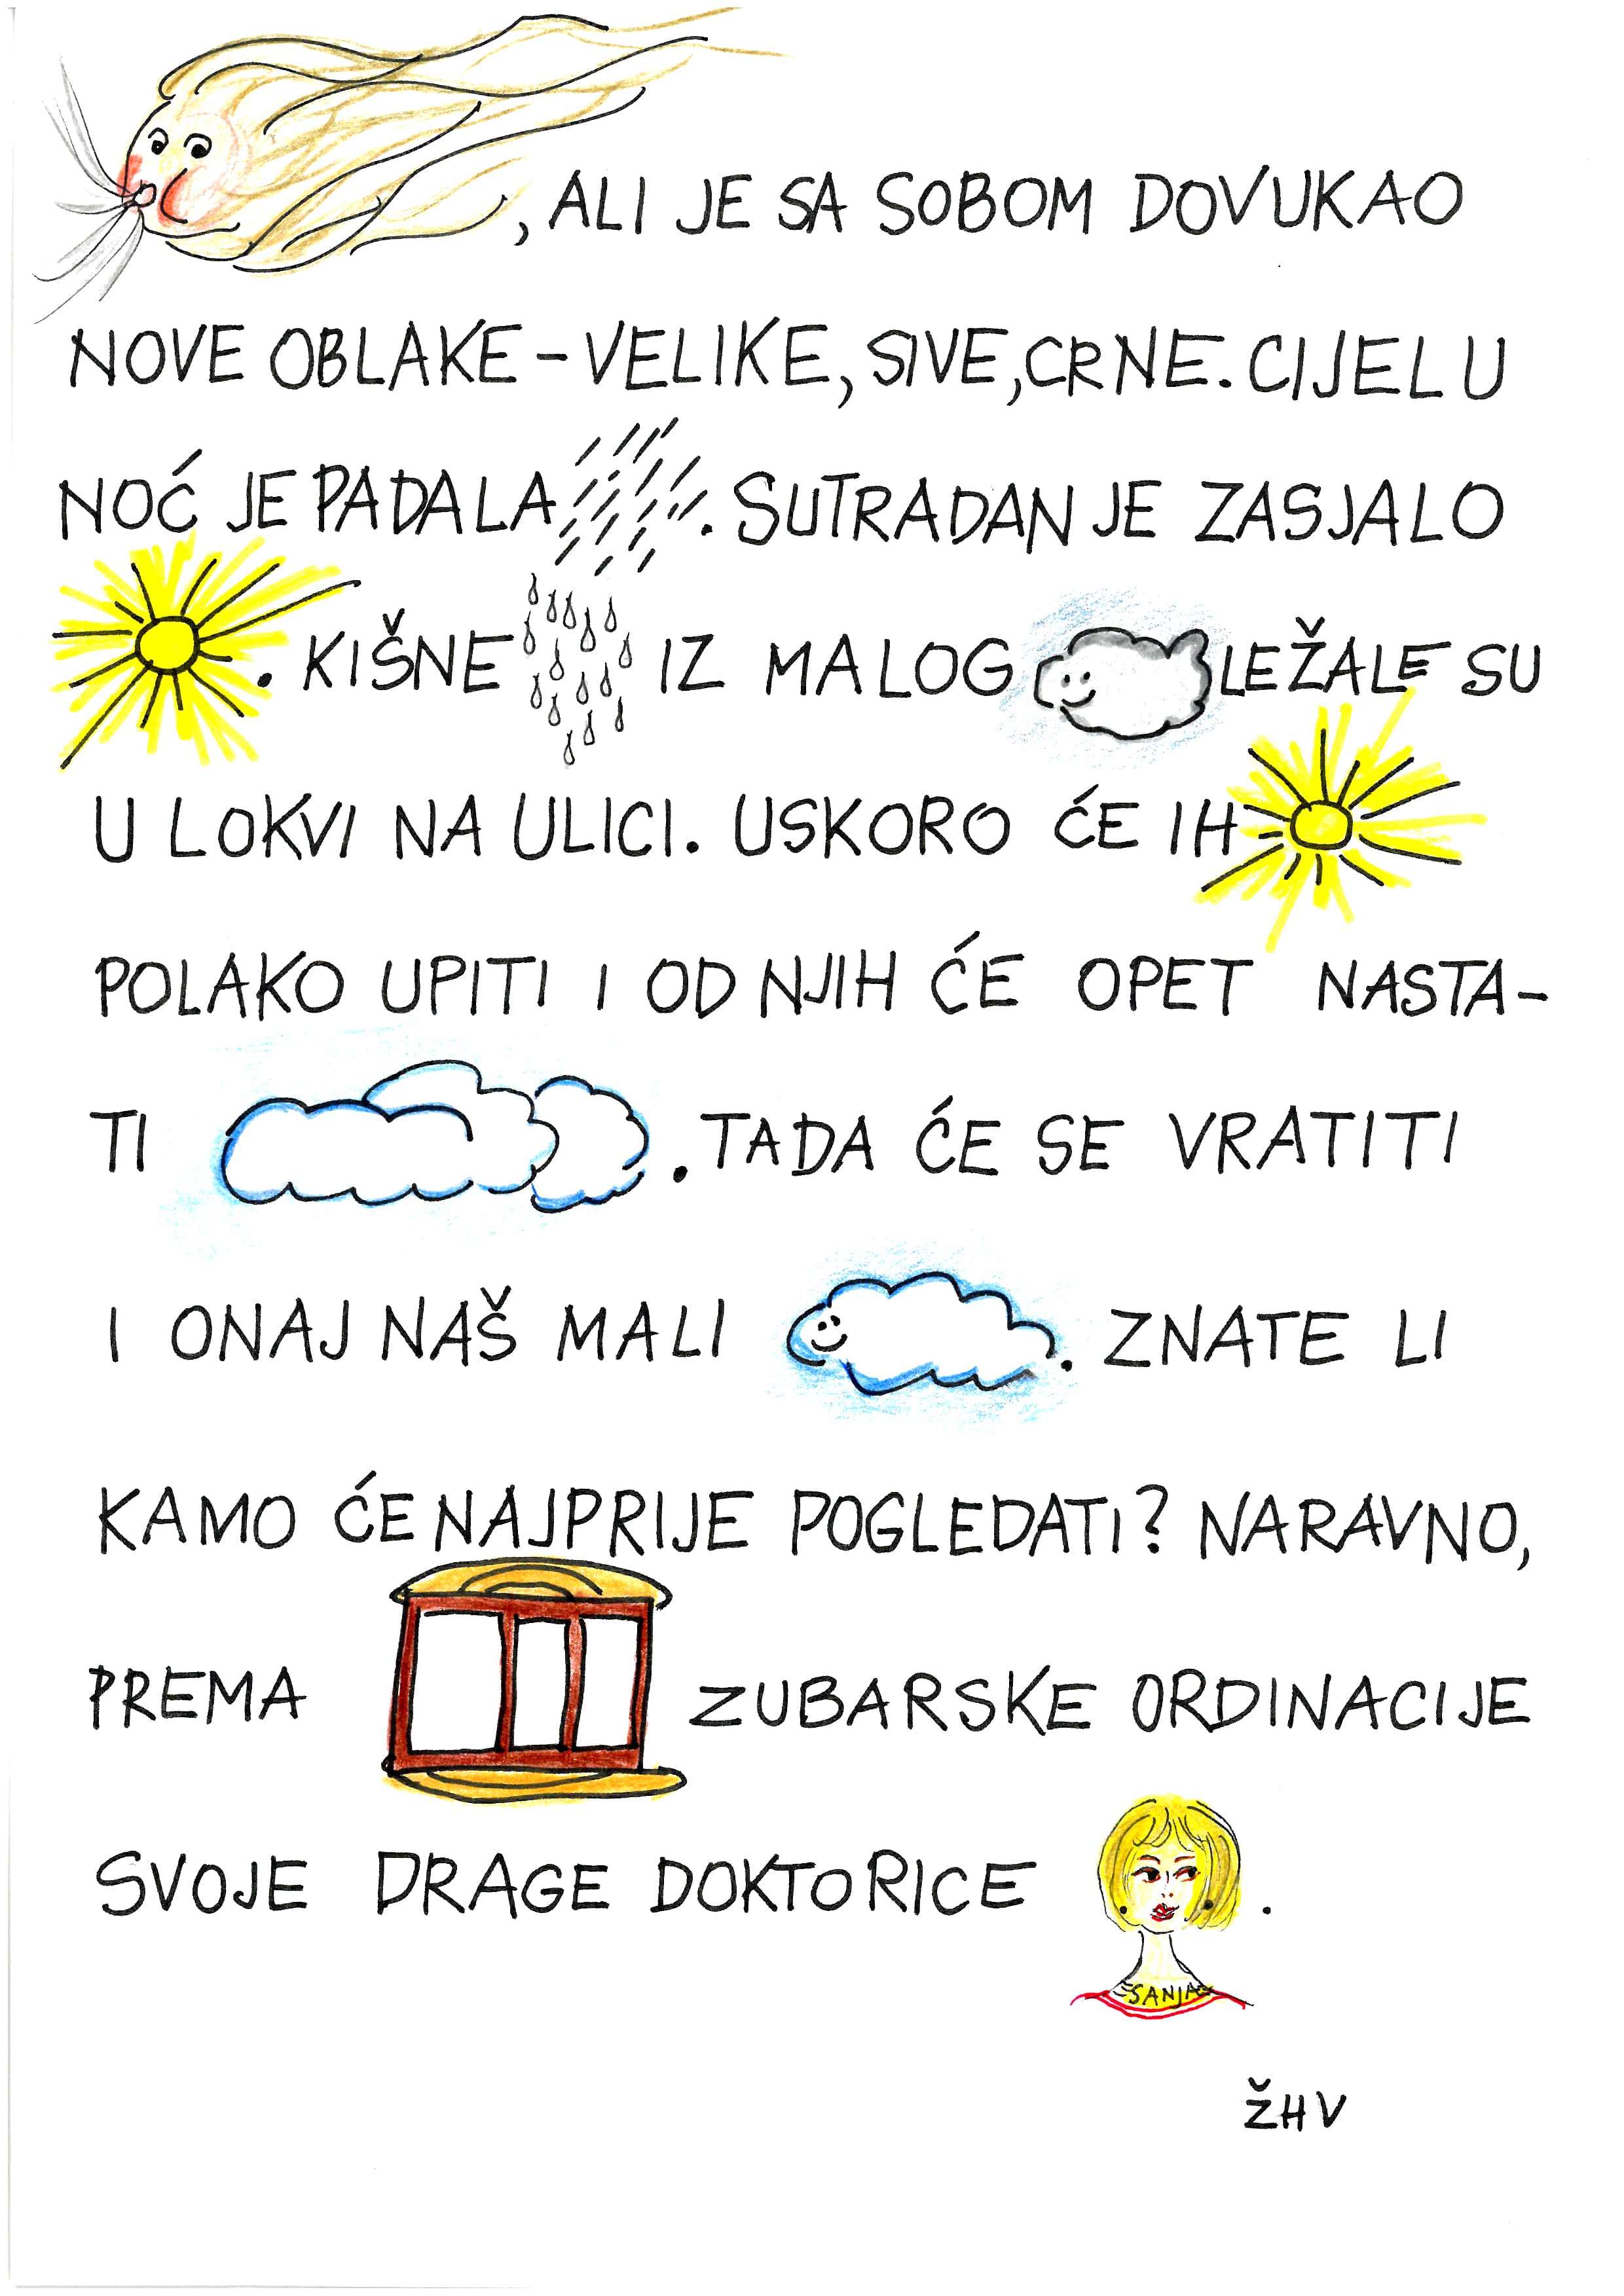 , ALI JE SA SOBOM DOVUKAO
NOVE OBLAKE - VELIKE, SIVE, CRNE. CIJELU
NOĆ JE PADALA . SUTRADAN JE ZASJALO
. KIŠNE IZ MALOG LEŽALE SU
U LOKVI NA ULICI. USKORO ĆE IH
POLAKO UPITI I OD NJIH ĆE OPET NASTA-
TI . TADA ĆE SE VRATITI
I ONAJ NAŠ MALI . ZNATE LI
KAMO ĆE NAJPRIJE POGLEDATI? NARAVNO,
PREMA ZUBARSKE ORDINACIJE
SVOJE DRAGE DOKTORICE .
SANJA
ŽHV